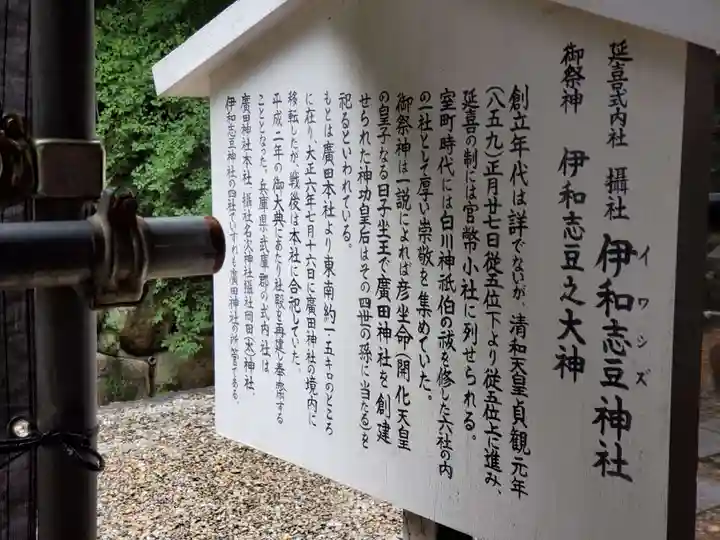 延喜式内社 攝社 伊和志豆神社
イワシズ
御祭神 伊和志豆之大神
創立年代は詳でないが、清和天皇貞観元年
(八五九)正月廿七日従五位下より従五位上に進み、
延喜の制には官幣小社に列せられる。
室町時代には白川神祇伯の祓を修した六社の内
の一社として厚い崇敬を集めていた。
御祭神は一説によれば彦坐命(開化天皇
の皇子なる日子坐王で廣田神社を創建
せられた神功皇后はその四世の孫に当たる)を
祀るといわれている。
もとは廣田本社より東南約一・五キロのところ
に在り大正六年七月十六日に廣田神社の境内に
移転したが、戦後は本社に合祀していた。
平成二年の御大典にあたり社殿を再建し奉斎する
こととなった。兵庫県武庫郡の式内社は
廣田神社本社 攝社名次神社攝社岡田(太)神社、
伊和志豆神社の四社でいずれも廣田神社の所管である。